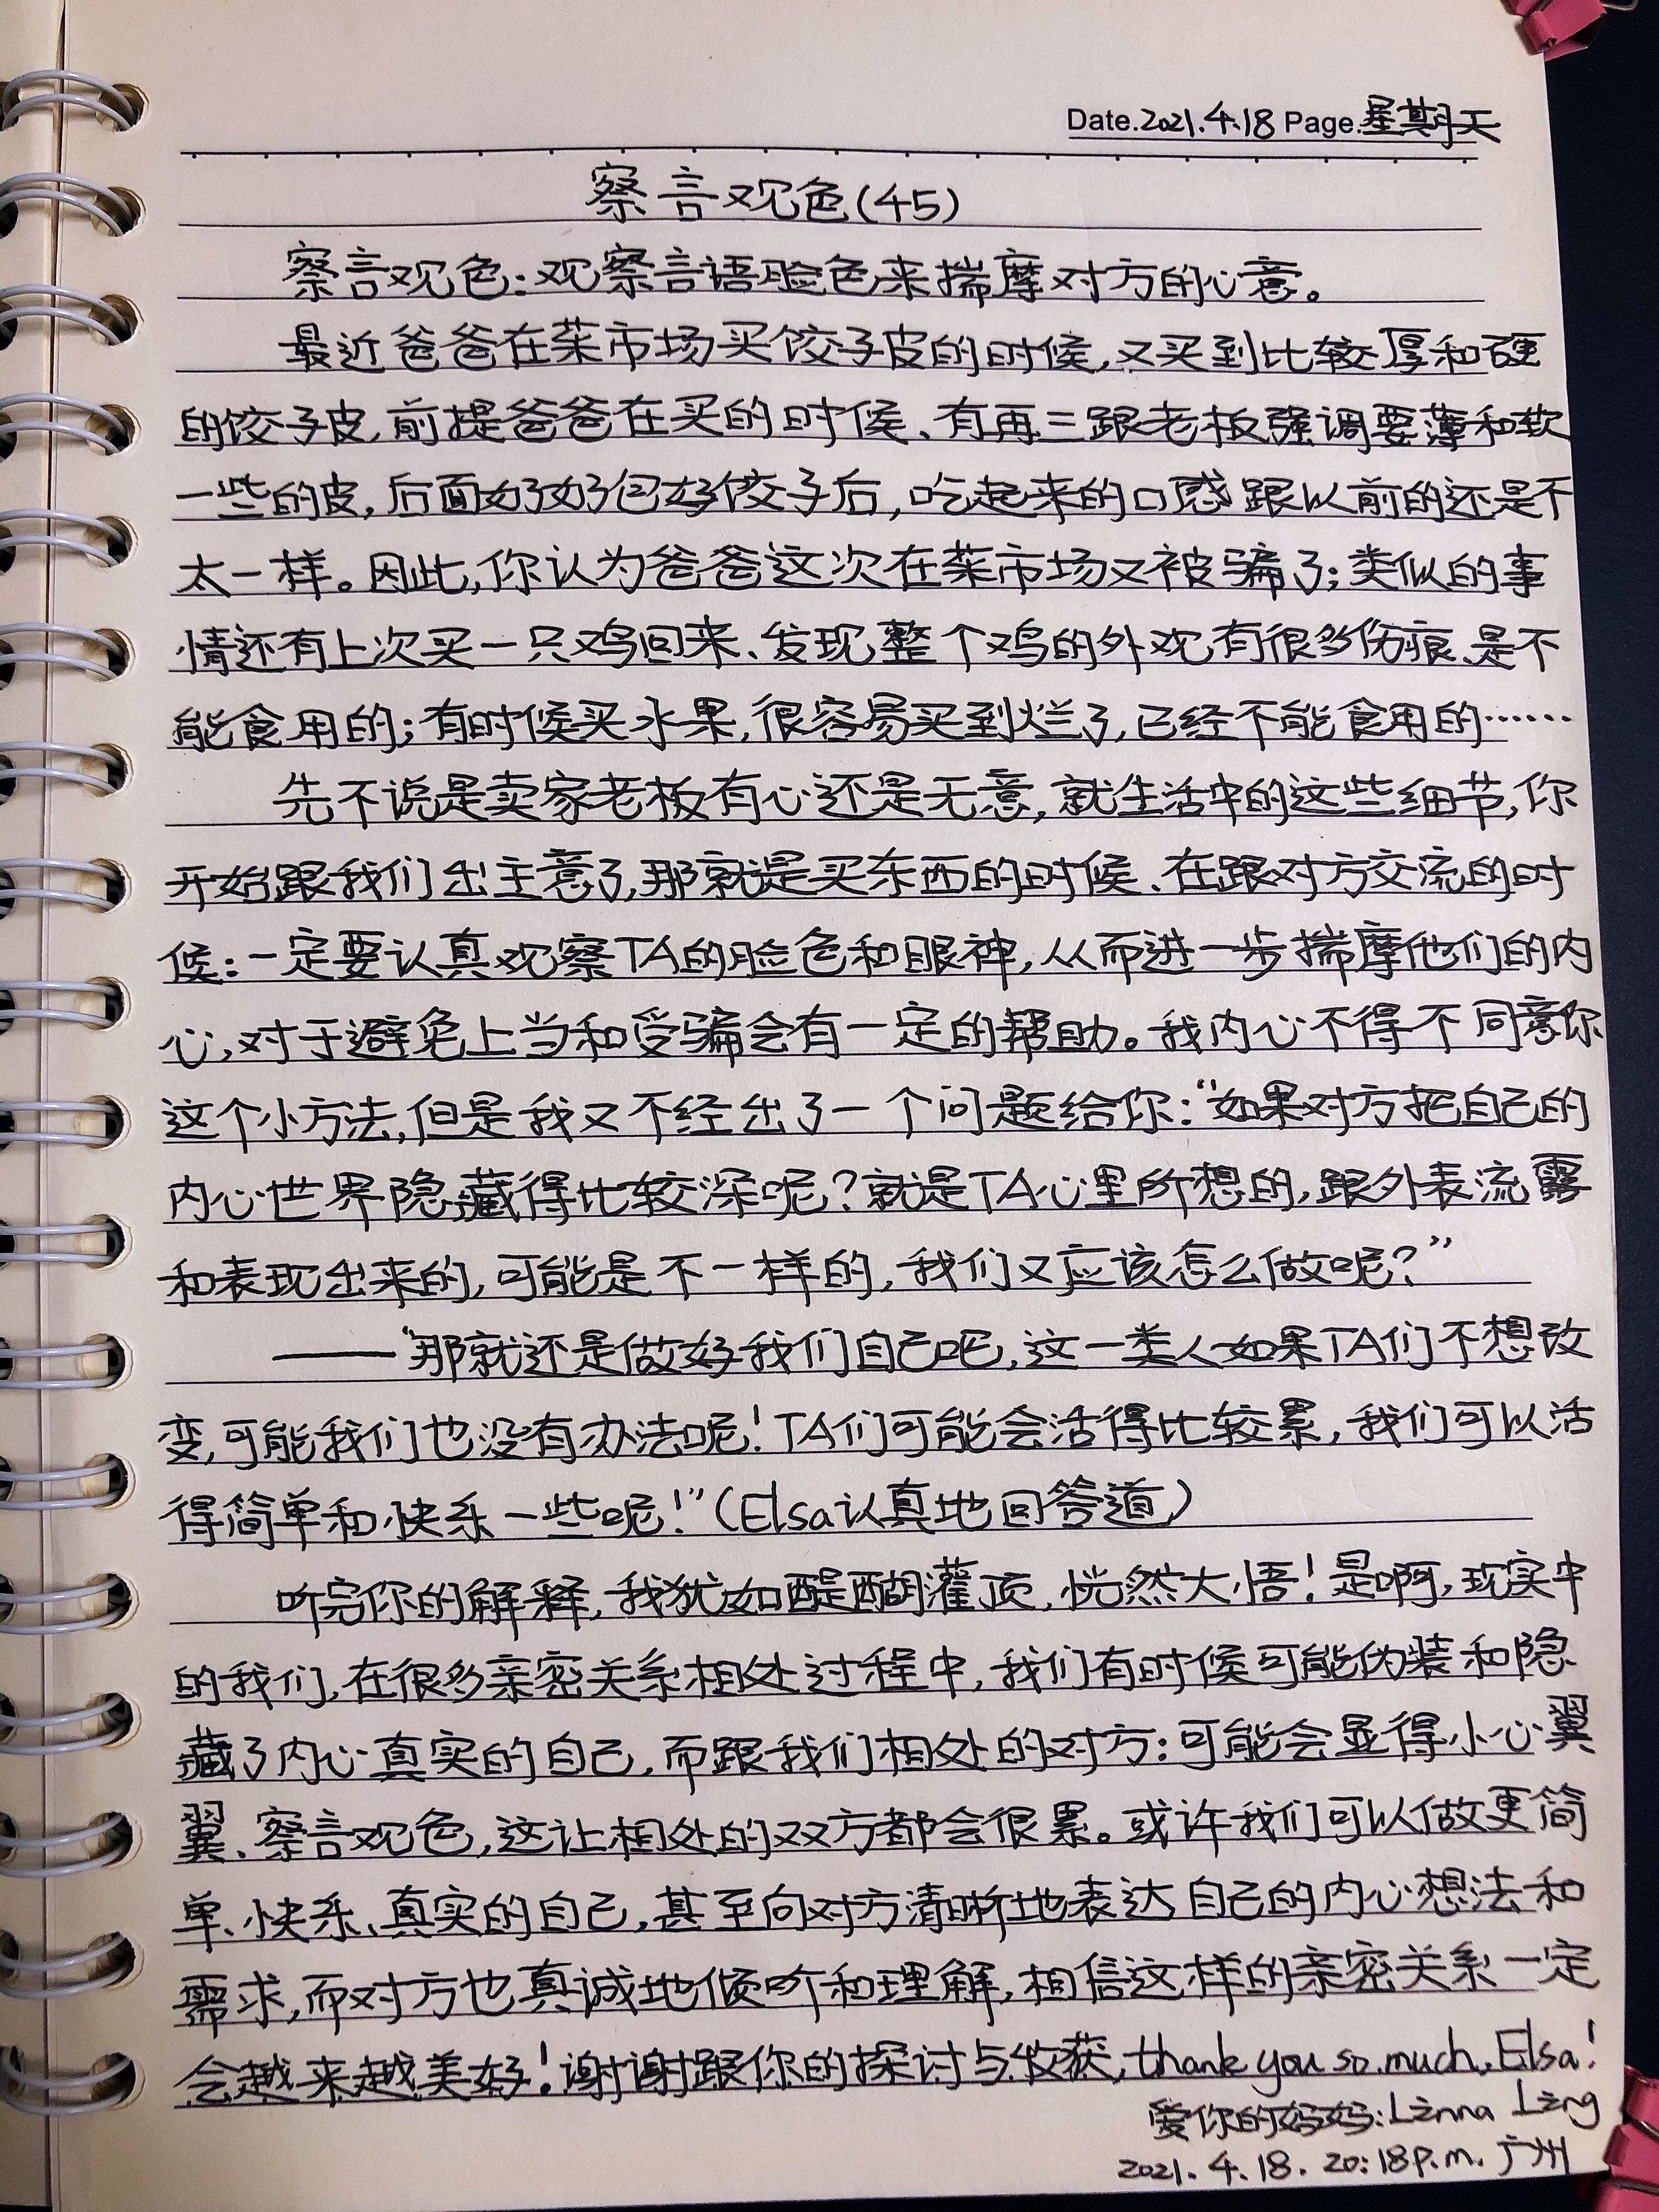 Date.2021.4.18 Page.星期天
察言观色(45)
察言观色:观察言语脸色来揣摩对方的心意。
最近爸爸在菜市场买饺子皮的时候,又买到比较厚和硬
的饺子皮,前提爸爸在买的时候、有再三跟老板强调要薄和软
一些的皮,后面好好包好饺子后,吃起来的口感跟以前的还是不
太一样。因此,你认为爸爸这次在菜市场又被骗了;类似的事
情还有上次买一只鸡回来、发现整个鸡的外观有很多伤痕、是不
能食用的;有时候买水果,很容易买到烂了,已经不能食用的……
先不说是卖家老板有心还是无意,就生活中的这些细节,你
开始跟我们出主意了,那就是买东西的时候、在跟对方交流的时
候:一定要认真观察TA的脸色和眼神,从而进一步揣摩他们的内
心,对于避免上当和受骗会有一定的帮助。我内心不得不同意你
这个小方法,但是我又不经出了一个问题给你:“如果对方把自己的
内心世界隐藏得比较深呢?就是TA心里所想的,跟外表流露
和表现出来的,可能是不一样的,我们又应该怎么做呢?”
——“那就还是做好我们自己吧,这一类人如果TA们不想改
变,可能我们也没有办法呢!TA们可能会活得比较累,我们可以活
得简单和快乐一些呢!”(Elsa认真地回答道)
听完你的解释,我犹如醍醐灌顶,恍然大悟!是啊,现实中
的我们,在很多亲密关系相处过程中,我们有时候可能伪装和隐
藏了内心真实的自己,而跟我们相处的对方:可能会显得小心翼
翼、察言观色,这让相处的双方都会很累。或许我们可以做更简
单、快乐、真实的自己,甚至向对方清晰地表达自己的内心想法和
需求,而对方也真诚地倾听和理解,相信这样的亲密关系一定
会越来越美好!谢谢跟你的探讨与收获,thank you so much,Elsa!
爱你的妈妈:Linna Ling
2021.4.18.20:18p.m.广州